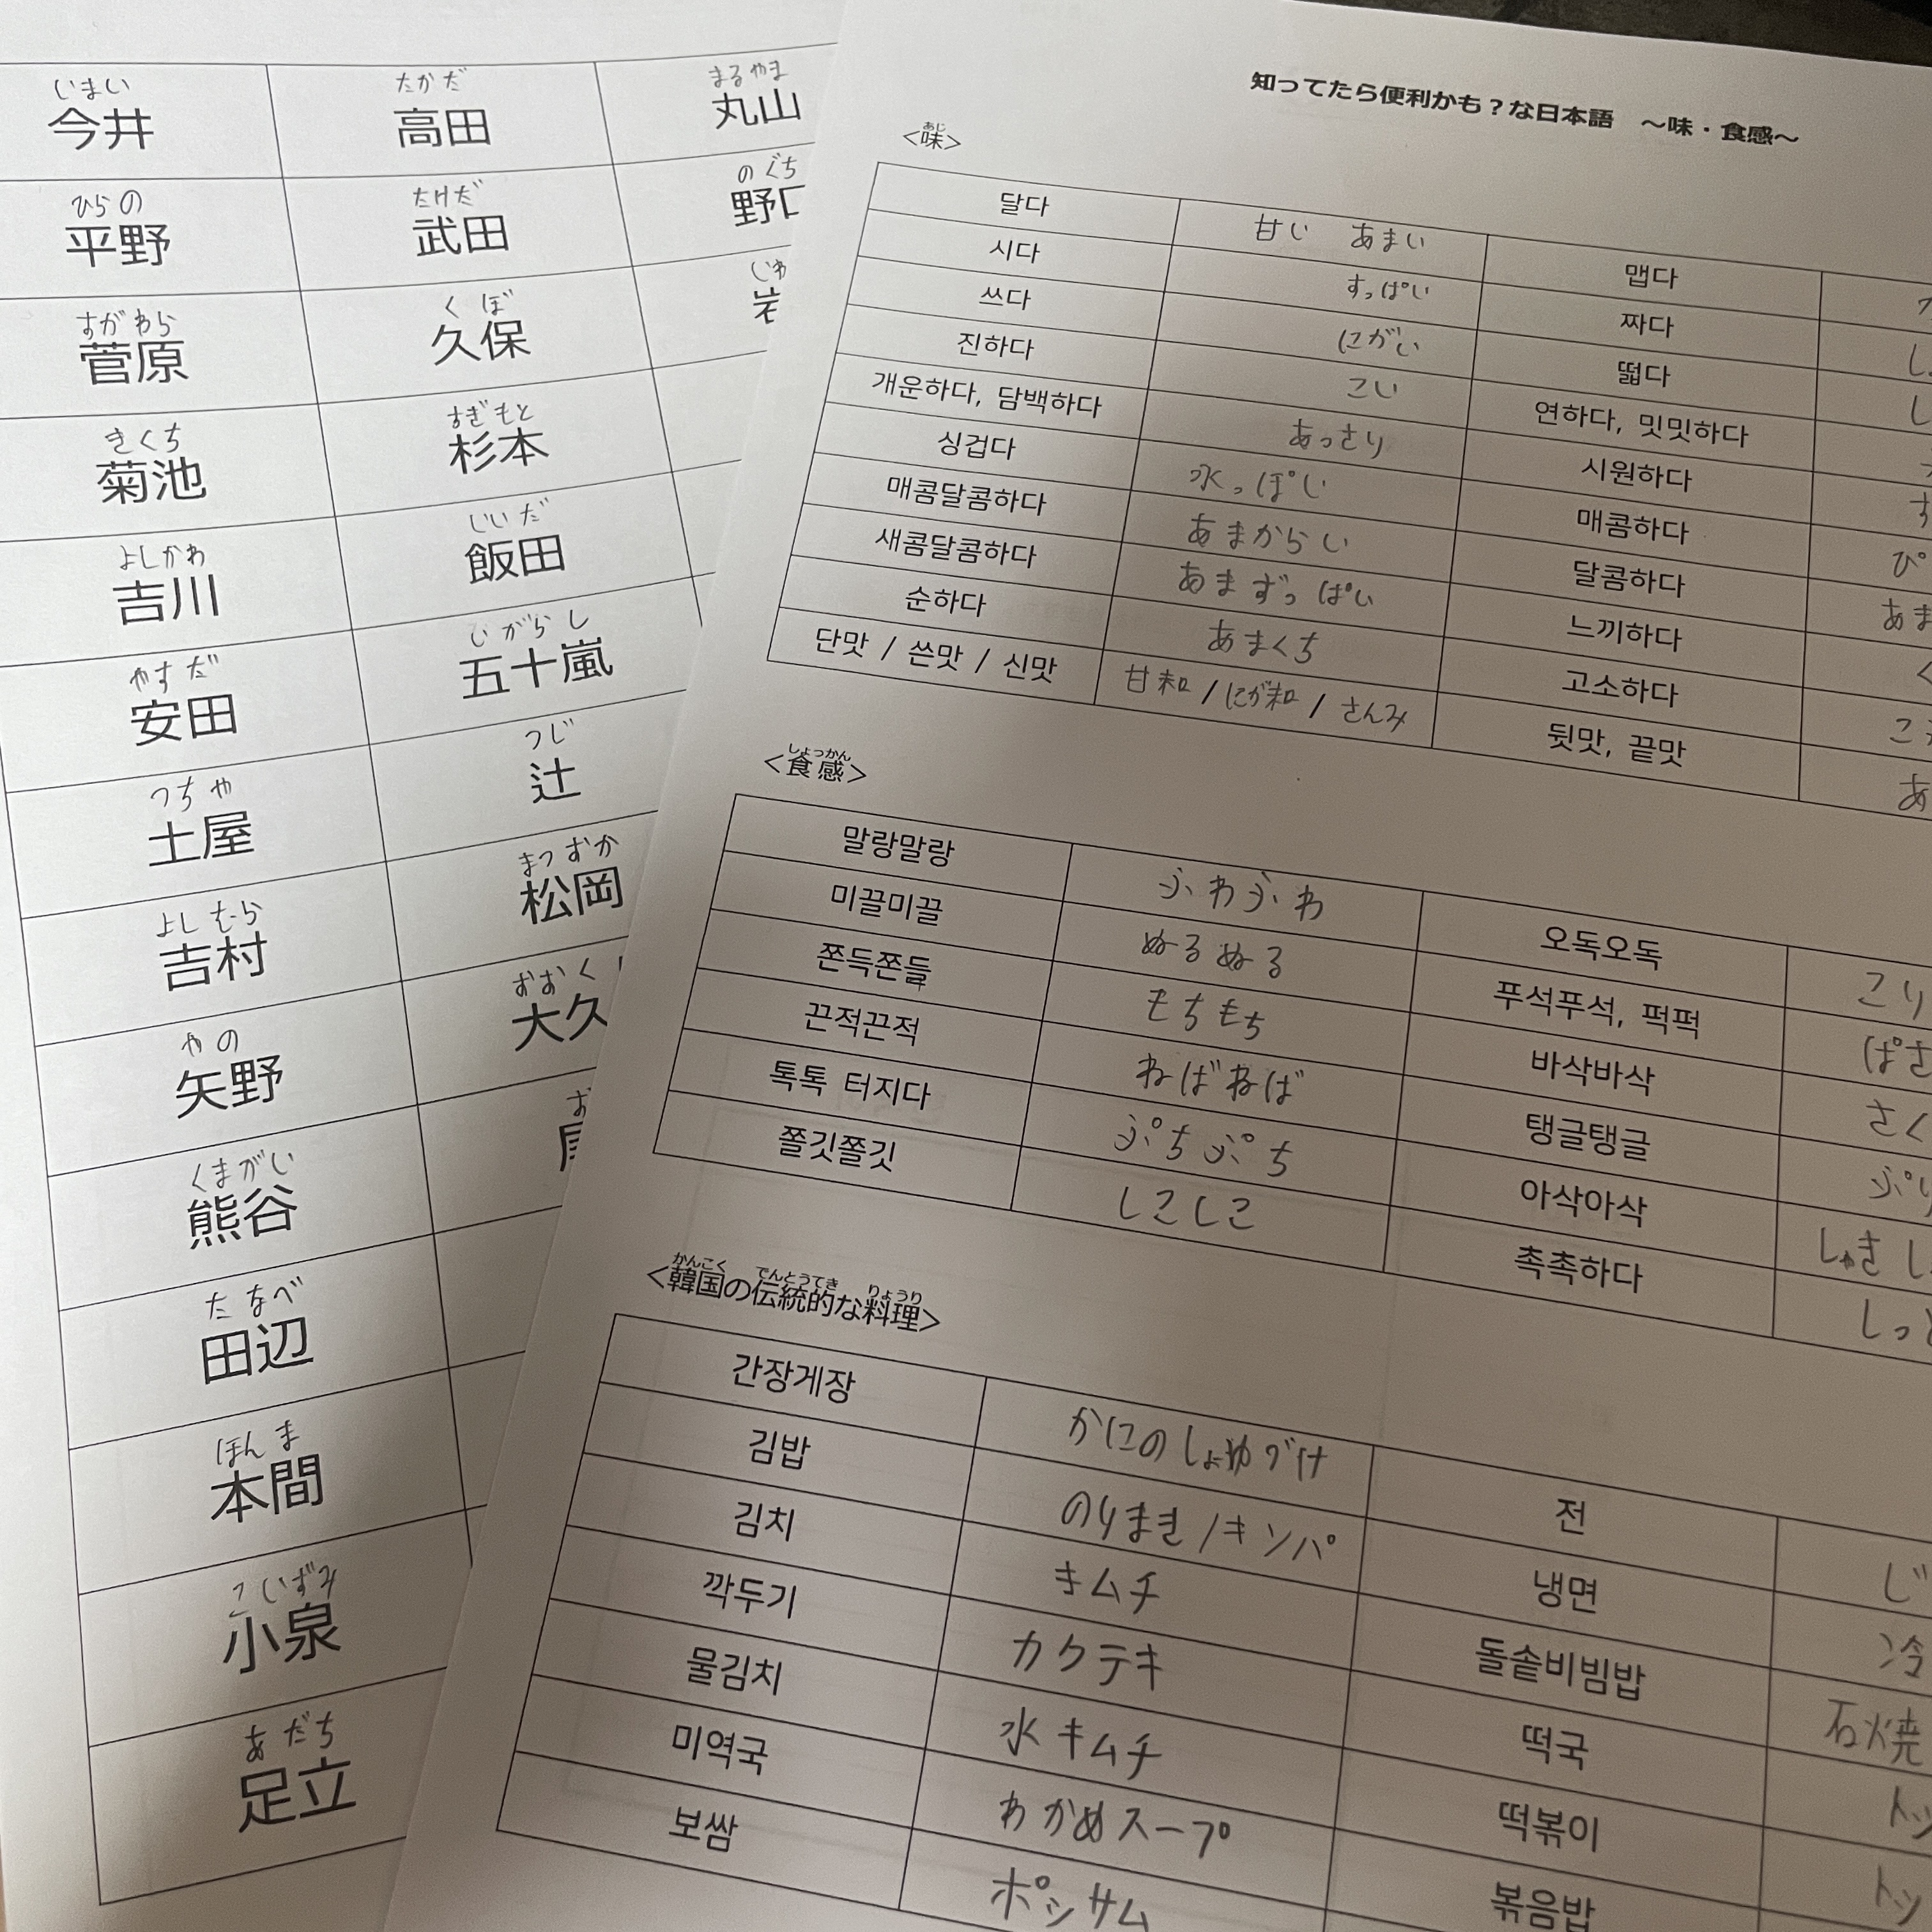 いまい
今井
たかだ
高田
まるやま
丸山
ひらの
平野
たけだ
武田
のぐち
野口
すがわら
菅原
くぼ
久保
いわ
岩
きくち
菊池
すぎもと
杉本
よしかわ
吉川
いいだ
飯田
やすだ
安田
いがらし
五十嵐
つちや
土屋
つじ
辻
よしむら
吉村
まつおか
松岡
やの
矢野
おおく
大久
くまがい
熊谷
お
尾
たなべ
田辺
ほんま
本間
こいずみ
小泉
あだち
足立
知ってたら便利かも？な日本語　～味・食感～
あじ
<味>
달다 甘い あまい 맵다
시다 すっぱい 짜다
쓰다 にがい 떫다
진하다 こい 연하다, 밋밋하다
개운하다, 담백하다 あっさり 시원하다
싱겁다 水っぽい 매콤하다 ぴ
매콤달콤하다 あまからい 달콤하다 あま
새콤달콤하다 あまずっぱい 느끼하다 く
순하다 あまくち 고소하다 こ
단맛 / 쓴맛 / 신맛 甘味 / にが味 / さんみ 뒷맛, 끝맛 あ
しょっかん
<食感>
말랑말랑 ふわふわ 오독오독 こり
미끌미끌 ぬるぬる 푸석푸석, 퍽퍽 ぱさ
쫀득쫀들 もちもち 바삭바삭 さく
끈적끈적 ねばねば 탱글탱글 ぷり
톡톡 터지다 ぷちぷち 아삭아삭 しゃきし
쫄깃쫄깃 しこしこ 촉촉하다 しっと
かんこく でんとうてき りょうり
<韓国の伝統的な料理>
간장게장 かにのしょゆづけ 전 じ
김밥 のりまき/キンパ 냉면 冷
김치 キムチ 돌솥비빔밥 石焼
깍두기 カクテキ 떡국 トッ
물김치 水キムチ 떡볶이 トッ
미역국 わかめスープ 볶음밥
보쌈 ポッサム